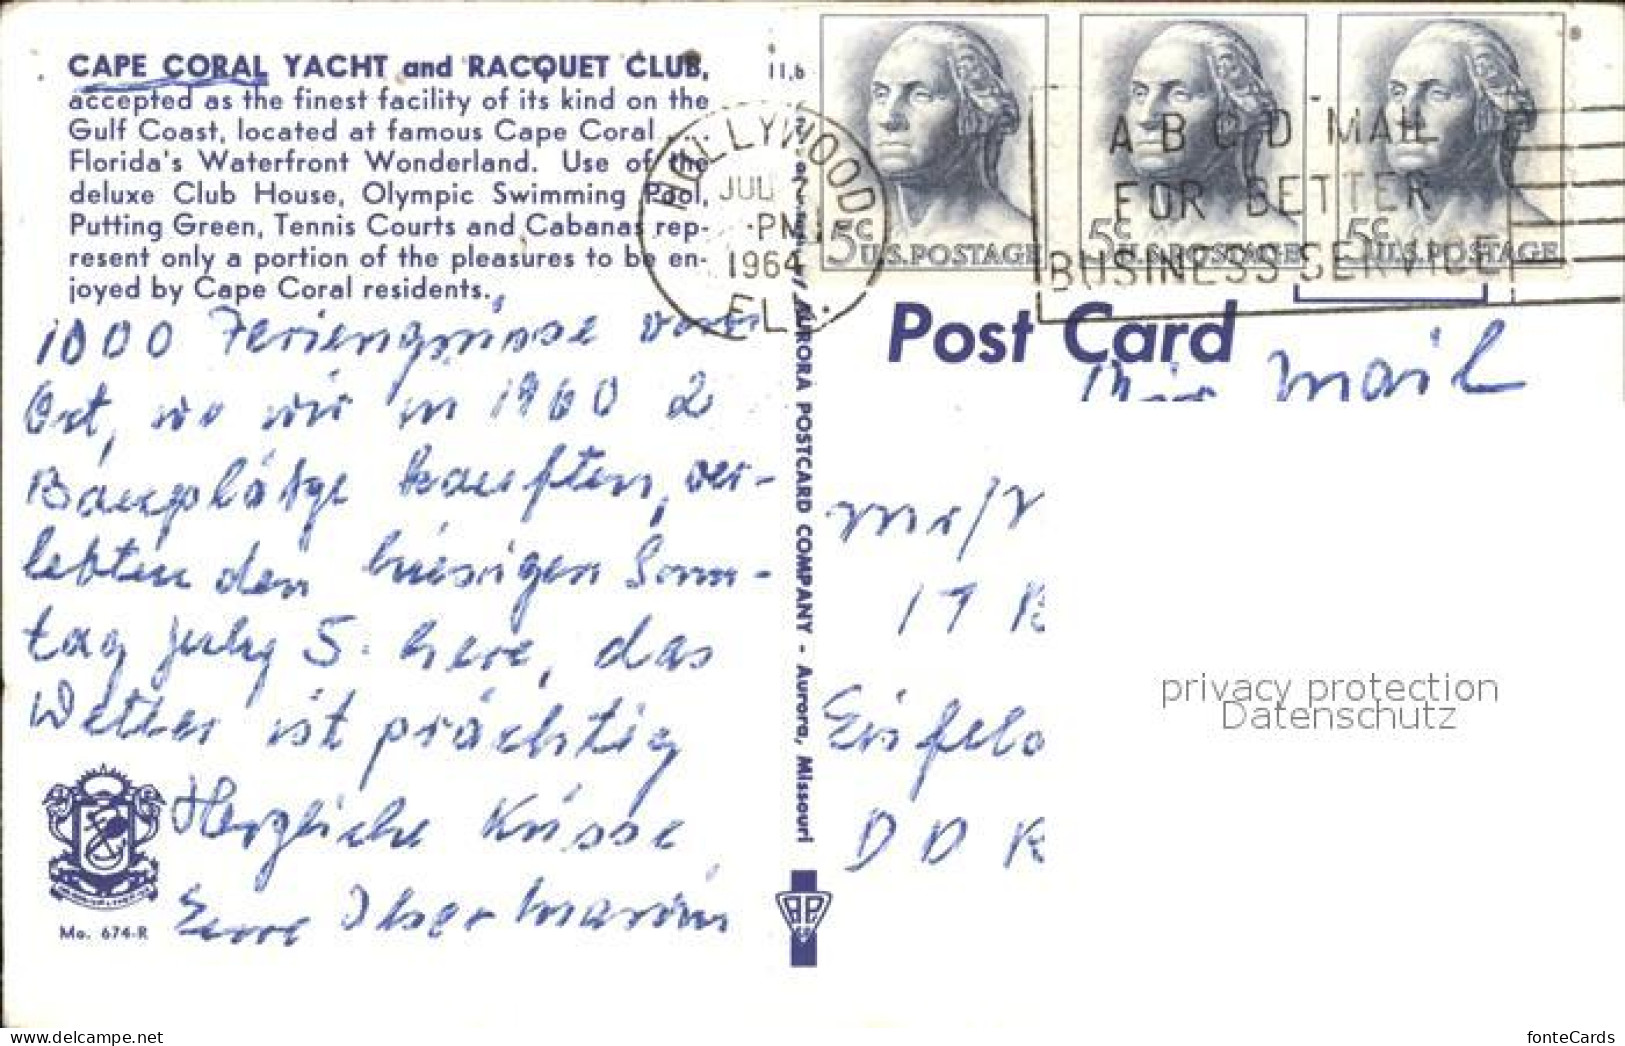 CAPE CORAL YACHT and RACQUET CLUB,
accepted as the finest facility of its kind on the
Gulf Coast, located at famous Cape Coral ....
Florida's Waterfront Wonderland. Use of the
deluxe Club House, Olympic Swimming Pool,
Putting Green, Tennis Courts and Cabanas rep-
resent only a portion of the pleasures to be en-
joyed by Cape Coral residents.
1000 Feriengrüsse vom
Ort, wo wir in 1960 2
Bauplätze kauften, ver-
lebten den hiesigen Sonn-
tag July 5. here, das
Wetter ist prächtig
Herzliche Küsse
Mo. 674-R
11.6
AURORA POSTCARD COMPANY - Aurora, Missouri
HOLLYWOOD
JUL
PM
1964
FLA.
5c U.S. POSTAGE
5c U.S. POSTAGE
5c U.S. POSTAGE
ABCD MAIL
FOR BETTER
BUSINESS SERVICE
Post Card
Air Mail
Mr/
17
Eisfeld
DDR
privacy protection
Datenschutz
www.delcampe.net
fonteCards